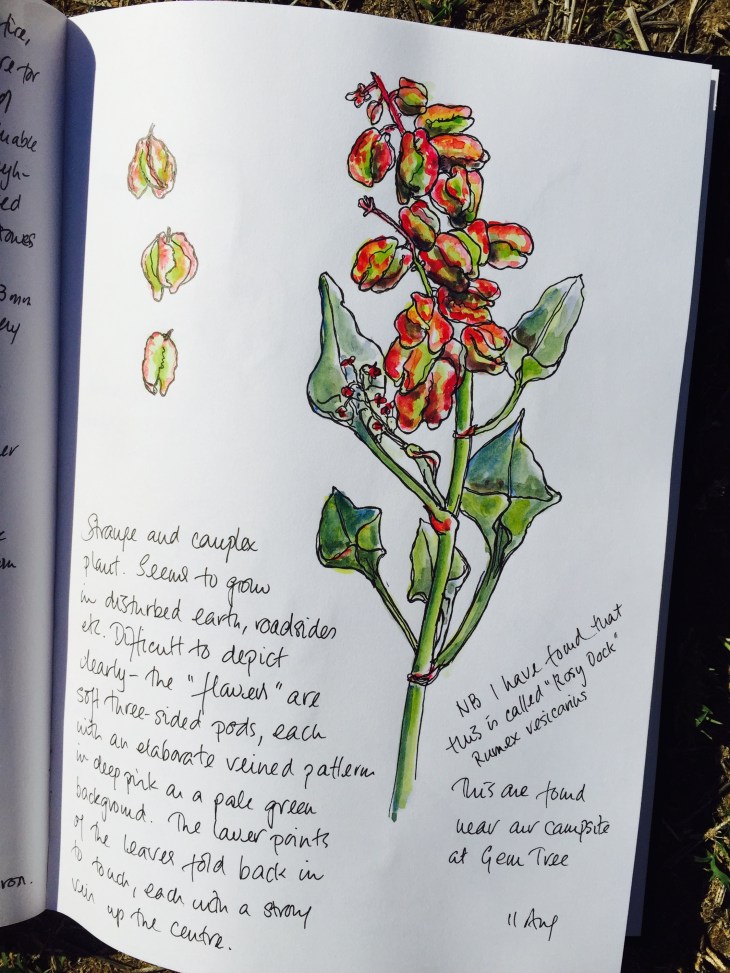 tice,
re for
of
uable
ugh-
ed
tones
3mm
ery
er
ron.
Strange and complex
plant. Seems to grow
in disturbed earth, roadsides
etc. Difficult to depict
clearly – the "flowers" are
soft three-sided pods, each
with an elaborate veined pattern
in deep pink on a pale green
background. The lower points
of the leaves fold back in
to touch, each with a strong
vein up the centre.
NB I have found that
this is called "Rosy Dock"
Rumex vesicarius
This one found
near our campsite
at Gem Tree
11 Aug